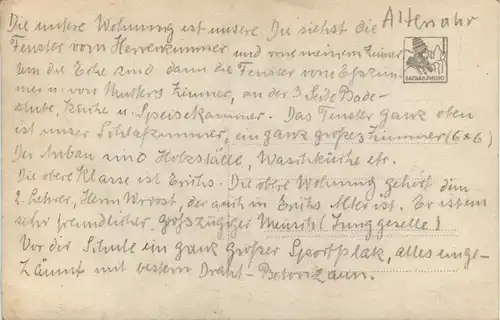 Altenahr
Die untere Wohnung ist unsere. Du siehst die
Fenster vom Herrenzimmer und vorne meinem Zimmer
um die Ecke sind dann die Fenster vom Esszim-
mer u. von Mutters Zimmer, an der 3 Seite Bade-
stube, Küche u. Speisekammer. Das Fenster ganz oben
ist unser Schlafzimmer, ein ganz großes Zimmer (6x6)
Der Anbau sind Holzställe, Waschküche etc.
Die obere Klasse ist Erichs. Die obere Wohnung gehört dem
2. Lehrer, Herrn, der auch in Erichs Alter ist. Er ist ein
sehr freundlicher, großzügiger Mensch (Junggeselle)
Vor der Schule ein ganz großer Sportplatz, alles einge-
zäunt mit bestem Draht-Betonzaun.